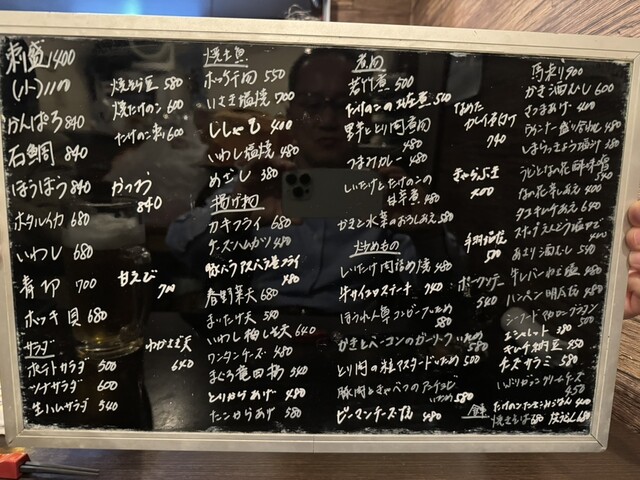 刺盛 1400
(小) 1100
かんぱち 840
石鯛 840
ほうぼう 840
ホタルイカ 680
いわし 680
青切 700
ホッキ貝 680
サラダ
ポテトサラダ 500
ツナサラダ 600
生ハムサラダ 540
焼そら豆 580
焼たけのこ 600
たけのこ刺 600
かつお 840
甘えび 700
わかさぎ天 640
焼き魚
ホッケ干物 550
いさき塩焼 700
ししゃも 400
いわし塩焼 480
めざし 380
揚げ物
カキフライ 680
チーズハムカツ 480
豚バラアスパラ巻フライ 480
春野菜天 680
まいたけ天 540
いわし梅しそ天 640
ワンタンチーズ 480
まぐろ竜田揚 540
とりからあげ 480
たこからあげ 580
煮物
若竹煮 500
たけのこの土佐煮 540
里芋ととり肉煮物 480
つまみカレー 480
しいたけとたけのこの甘辛煮 480
かきと水菜のおろしあえ 580
炒めもの
しいたけ肉詰め焼 480
牛サイコロステーキ 740
ほうれん草コンビーフいため 580
かきとベーコンのガーリックいため 580
とり肉の粒マスタードいため 500
豚肉とキャベツのアンチョビいため 580
ピーマンチーズ焼 480
なめたカレイ煮付け 740
きゃらぶき 400
手羽塩焼 580
ポークソテー 540
馬刺し 900
かき酒むし 600
さつまあげ 400
ウィンナー盛り合わせ 480
しまらっきょう塩漬け 380
うどとなの花酢味噌 540
なの花辛しあえ 400
タコキムチあえ 640
スナップえんどう塩ゆで 400
あさり酒むし 540
牛レバーやき塩 480
ハンペン明太焼 480
エシャレット 380
キムチ納豆 450
チーズサラミ 580
いぶりがっこクリームチーズ 450
たけのこたきこみごはん 400
焼きそば 680